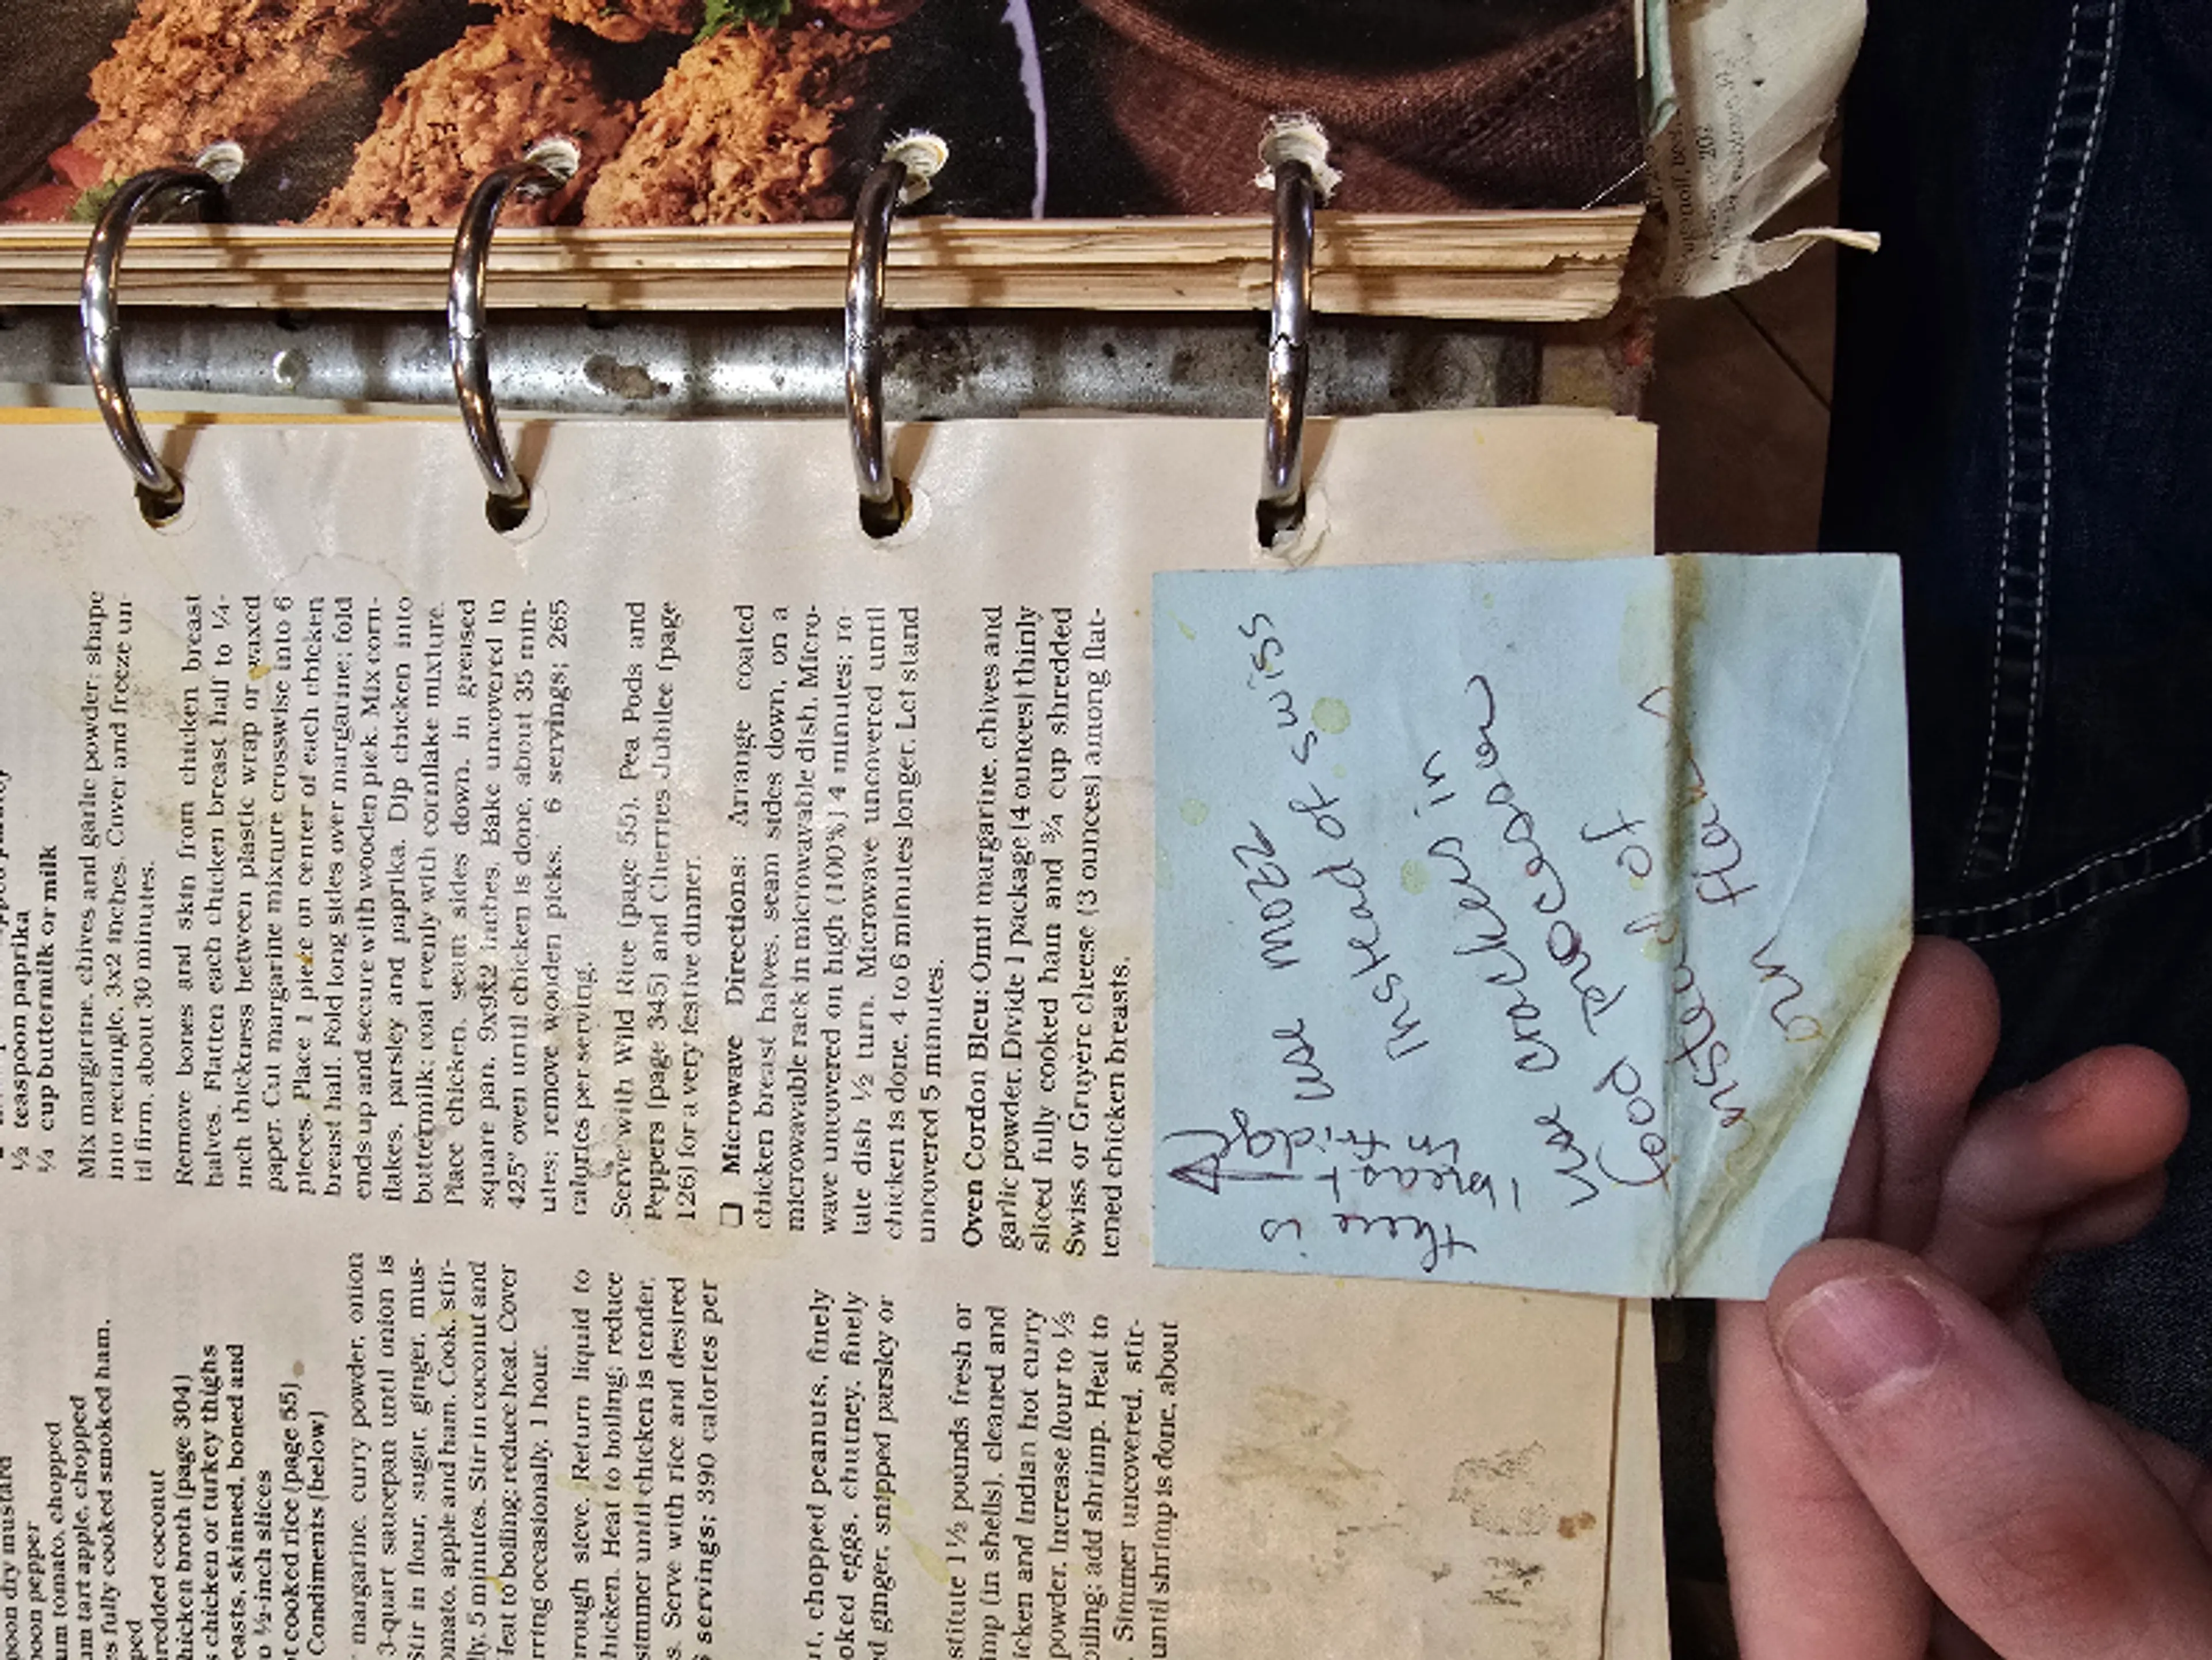 ½ teaspoon paprika
¼ cup buttermilk or milk
Mix margarine, chives and garlic powder; shape
into rectangle, 3x2 inches. Cover and freeze un-
til firm, about 30 minutes.
Remove bones and skin from chicken breast
halves. Flatten each chicken breast half to ¼-
inch thickness between plastic wrap or waxed
paper. Cut margarine mixture crosswise into 6
pieces. Place 1 piece on center of each chicken
breast half. Fold long sides over margarine; fold
ends up and secure with wooden pick. Mix corn-
flakes, parsley and paprika. Dip chicken into
buttermilk; coat evenly with cornflake mixture.
Place chicken, seam sides down, in greased
square pan, 9x9x2 inches. Bake uncovered in
425° oven until chicken is done, about 35 min-
utes; remove wooden picks. 6 servings; 265
calories per serving.
Serve with Wild Rice (page 55), Pea Pods and
Peppers (page 345) and Cherries Jubilee (page
126) for a very festive dinner.
❑ Microwave Directions: Arrange coated
chicken breast halves, seam sides down, on a
microwavable rack in microwavable dish. Micro-
wave uncovered on high (100%) 4 minutes; ro-
tate dish ½ turn. Microwave uncovered until
chicken is done, 4 to 6 minutes longer. Let stand
uncovered 5 minutes.
Oven Cordon Bleu: Omit margarine, chives and
garlic powder. Divide 1 package (4 ounces) thinly
sliced fully cooked ham and ¾ cup shredded
Swiss or Gruyère cheese (3 ounces) among flat-
tened chicken breasts.
use mozz
instead of swiss
there is
1 breast
in fridge
use crackers in
food processor
instead of
orn flakes
poon dry mustard
poon pepper
um tomato, chopped
um tart apple, chopped
es fully cooked smoked ham,
ped
redded coconut
hicken broth (page 304)
s chicken or turkey thighs
easts, skinned, boned and
o ½-inch slices
ot cooked rice (page 55)
Condiments (below)
margarine, curry powder, onion
3-quart saucepan until onion is
Stir in flour, sugar, ginger, mus-
omato, apple and ham. Cook, stir-
lly, 5 minutes. Stir in coconut and
Heat to boiling; reduce heat. Cover
rring occasionally, 1 hour.
hrough sieve. Return liquid to
hicken. Heat to boiling; reduce
simmer until chicken is tender,
s. Serve with rice and desired
6 servings; 390 calories per
ut, chopped peanuts, finely
ooked eggs, chutney, finely
ed ginger, snipped parsley or
stitute 1½ pounds fresh or
imp (in shells), cleaned and
icken and Indian hot curry
powder. Increase flour to ⅓
oiling; add shrimp. Heat to
Simmer uncovered, stir-
until shrimp is done, about